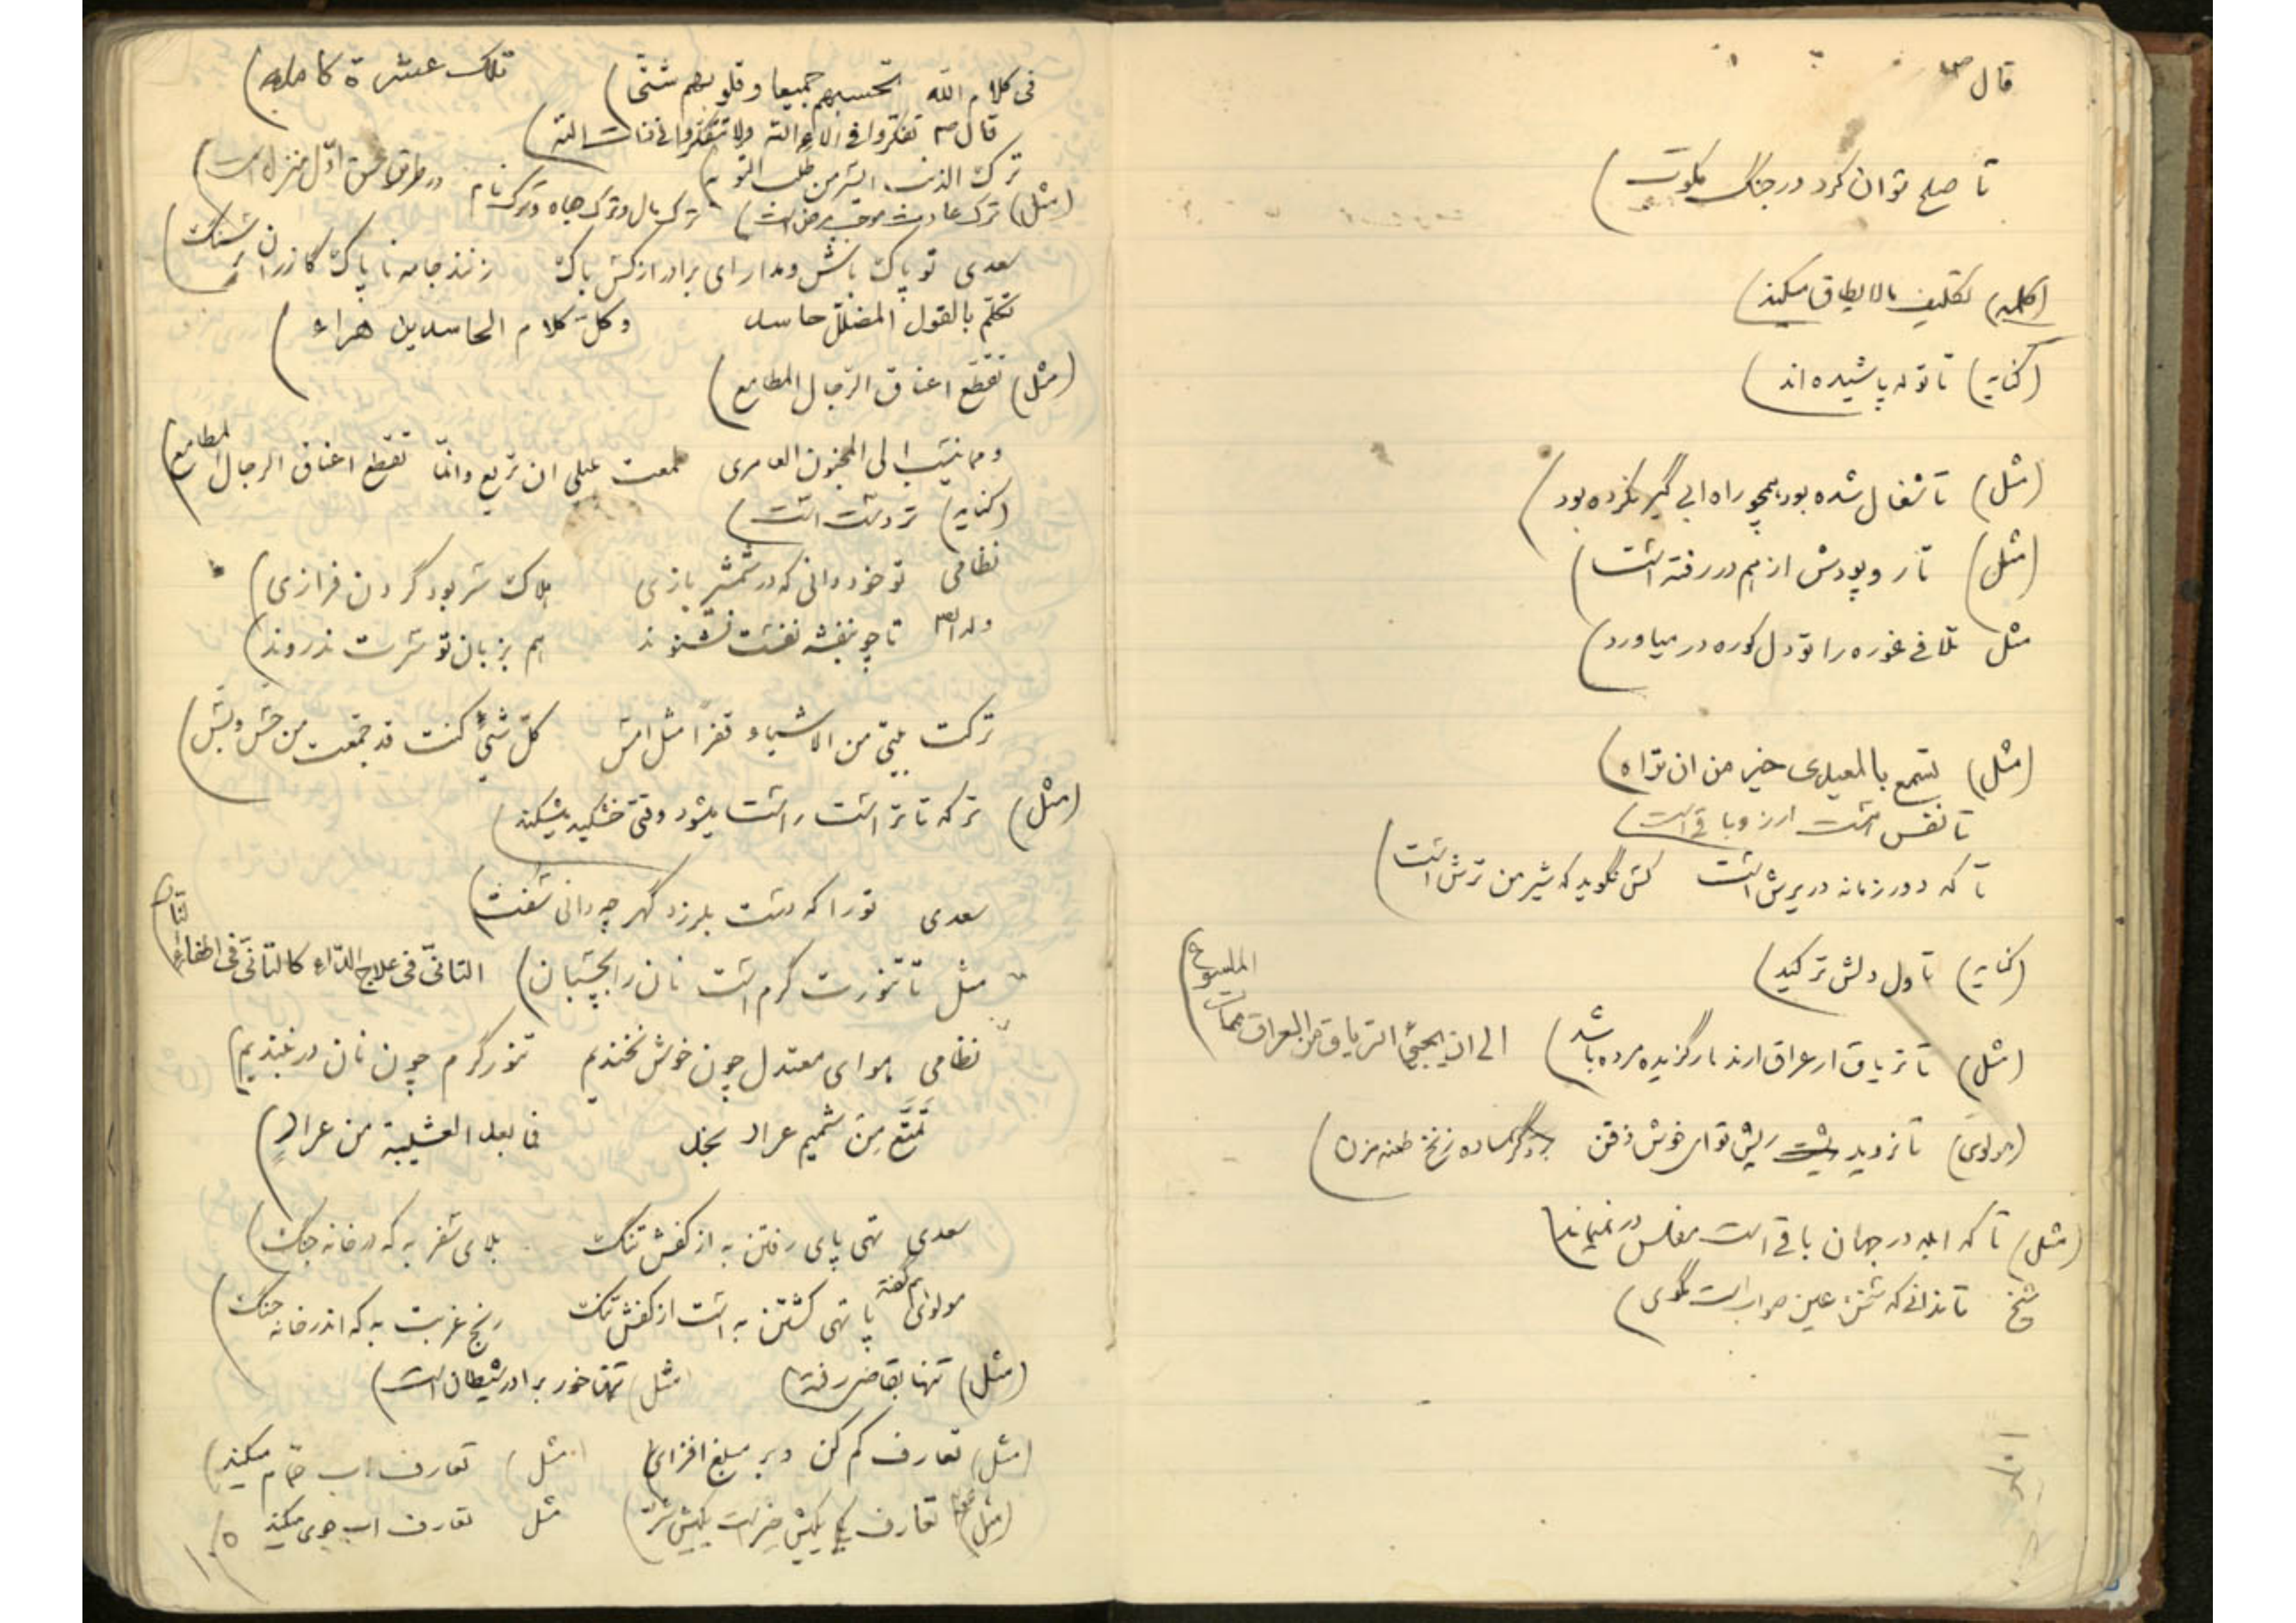 قال ص
تا صلح توان کرد در جنگ مکوب)
(کلمه) تکلیف مالایطاق میکند)
(کنایه) تا توله پاشیده اند)
(مثل) تا شغال شده بود بهمچو راه ابی گیر نکرده بود)
(مثل) تار و پودش از هم در رفته است)
مثل تلافی غوره را تو دل کوره در میاورد)
(مثل) تسمع بالمعیدی خیر من ان تراه)
تا نفس است ارزو باقی است)
تا که دور زمانه در پرش است کس نگوید که شیر من ترش است)
(کنایه) تاول دلش ترکید)
(مثل) تا تریاق از عراق ارند مارگزیده مرده باشد) الی ان یجیئ التریاق من العراق مات الملسوع)
(مولوی) تا نروید ریش تو ای خوش ذقن بر دگر ساده زنخ طعنه مزن)
(مثل) تا که ابله در جهان باقی است مفلس در نمیماند)
شیخ تا ندانی که سخن عین صواب است مگوی)
فی کلام الله تحسبهم جمیعا و قلوبهم شتی) تلک عشرة کامله)
قال ص تفکروا فی الاء الله ولا تتفکروا فی ذات الله)
ترک الذنب ایسر من طلب التوبه)
(مثل) ترک عادت موجب مرض است) ترک مال و ترک جاه و ترک نام در طریق عشق اول منزل است)
سعدی تو پاک باش و مدار ای برادر از کس باک زنند جامه ناپاک گازران بر سنگ)
تکلم بالقول المضلل حاسد وکل کلام الحاسدین هراء)
(مثل) تقطع اعناق الرجال المطامع)
ومما ینسب الی المجنون العامری طمعت بلیلی ان تریع وانما تقطع اعناق الرجال المطامع)
(کنایه) تردست است)
نظامی تو خود دانی که در شمشیر بازی هلاک سر بود گردن فرازی)
وله ایضا تا چو بنفشه نفست نشنوند هم بزبان تو سرت ندروند)
ترکت بیتی من الاشیاء قفرا مثل امس کل شیئ کنت قد جمعت من خس و بس)
(مثل) ترکه تا تر است راست میشود وقتی خشکید میشکند)
سعدی تو را که دست بلرزد گهر چه دانی سفت)
مثل تا تنورت گرم است نان را بچسبان) التانی فی علاج الداء کالتانی فی اطفاء النار)
نظامی هوای معتدل چون خوش نخندیم تنور گرم چون نان در نبندیم)
تمتع من شمیم عرار نجد فما بعد العشیة من عرار)
سعدی تهی پای رفتن به از کفش تنگ بلای سفر به که در خانه جنگ)
مولوی هم گفته پا تهی گشتن به است از کفش تنگ رنج غربت به که اندر خانه جنگ)
(مثل) تنها بقاضی رفته) مثل) تنها خور برادر شیطان است)
(مثل) تعارف کم کن و بر مبلغ افزای) مثل) تعارف اب حمام میکند)
(مثل) تعارف مثل تعارف اب جوی میکند
۱۰۵